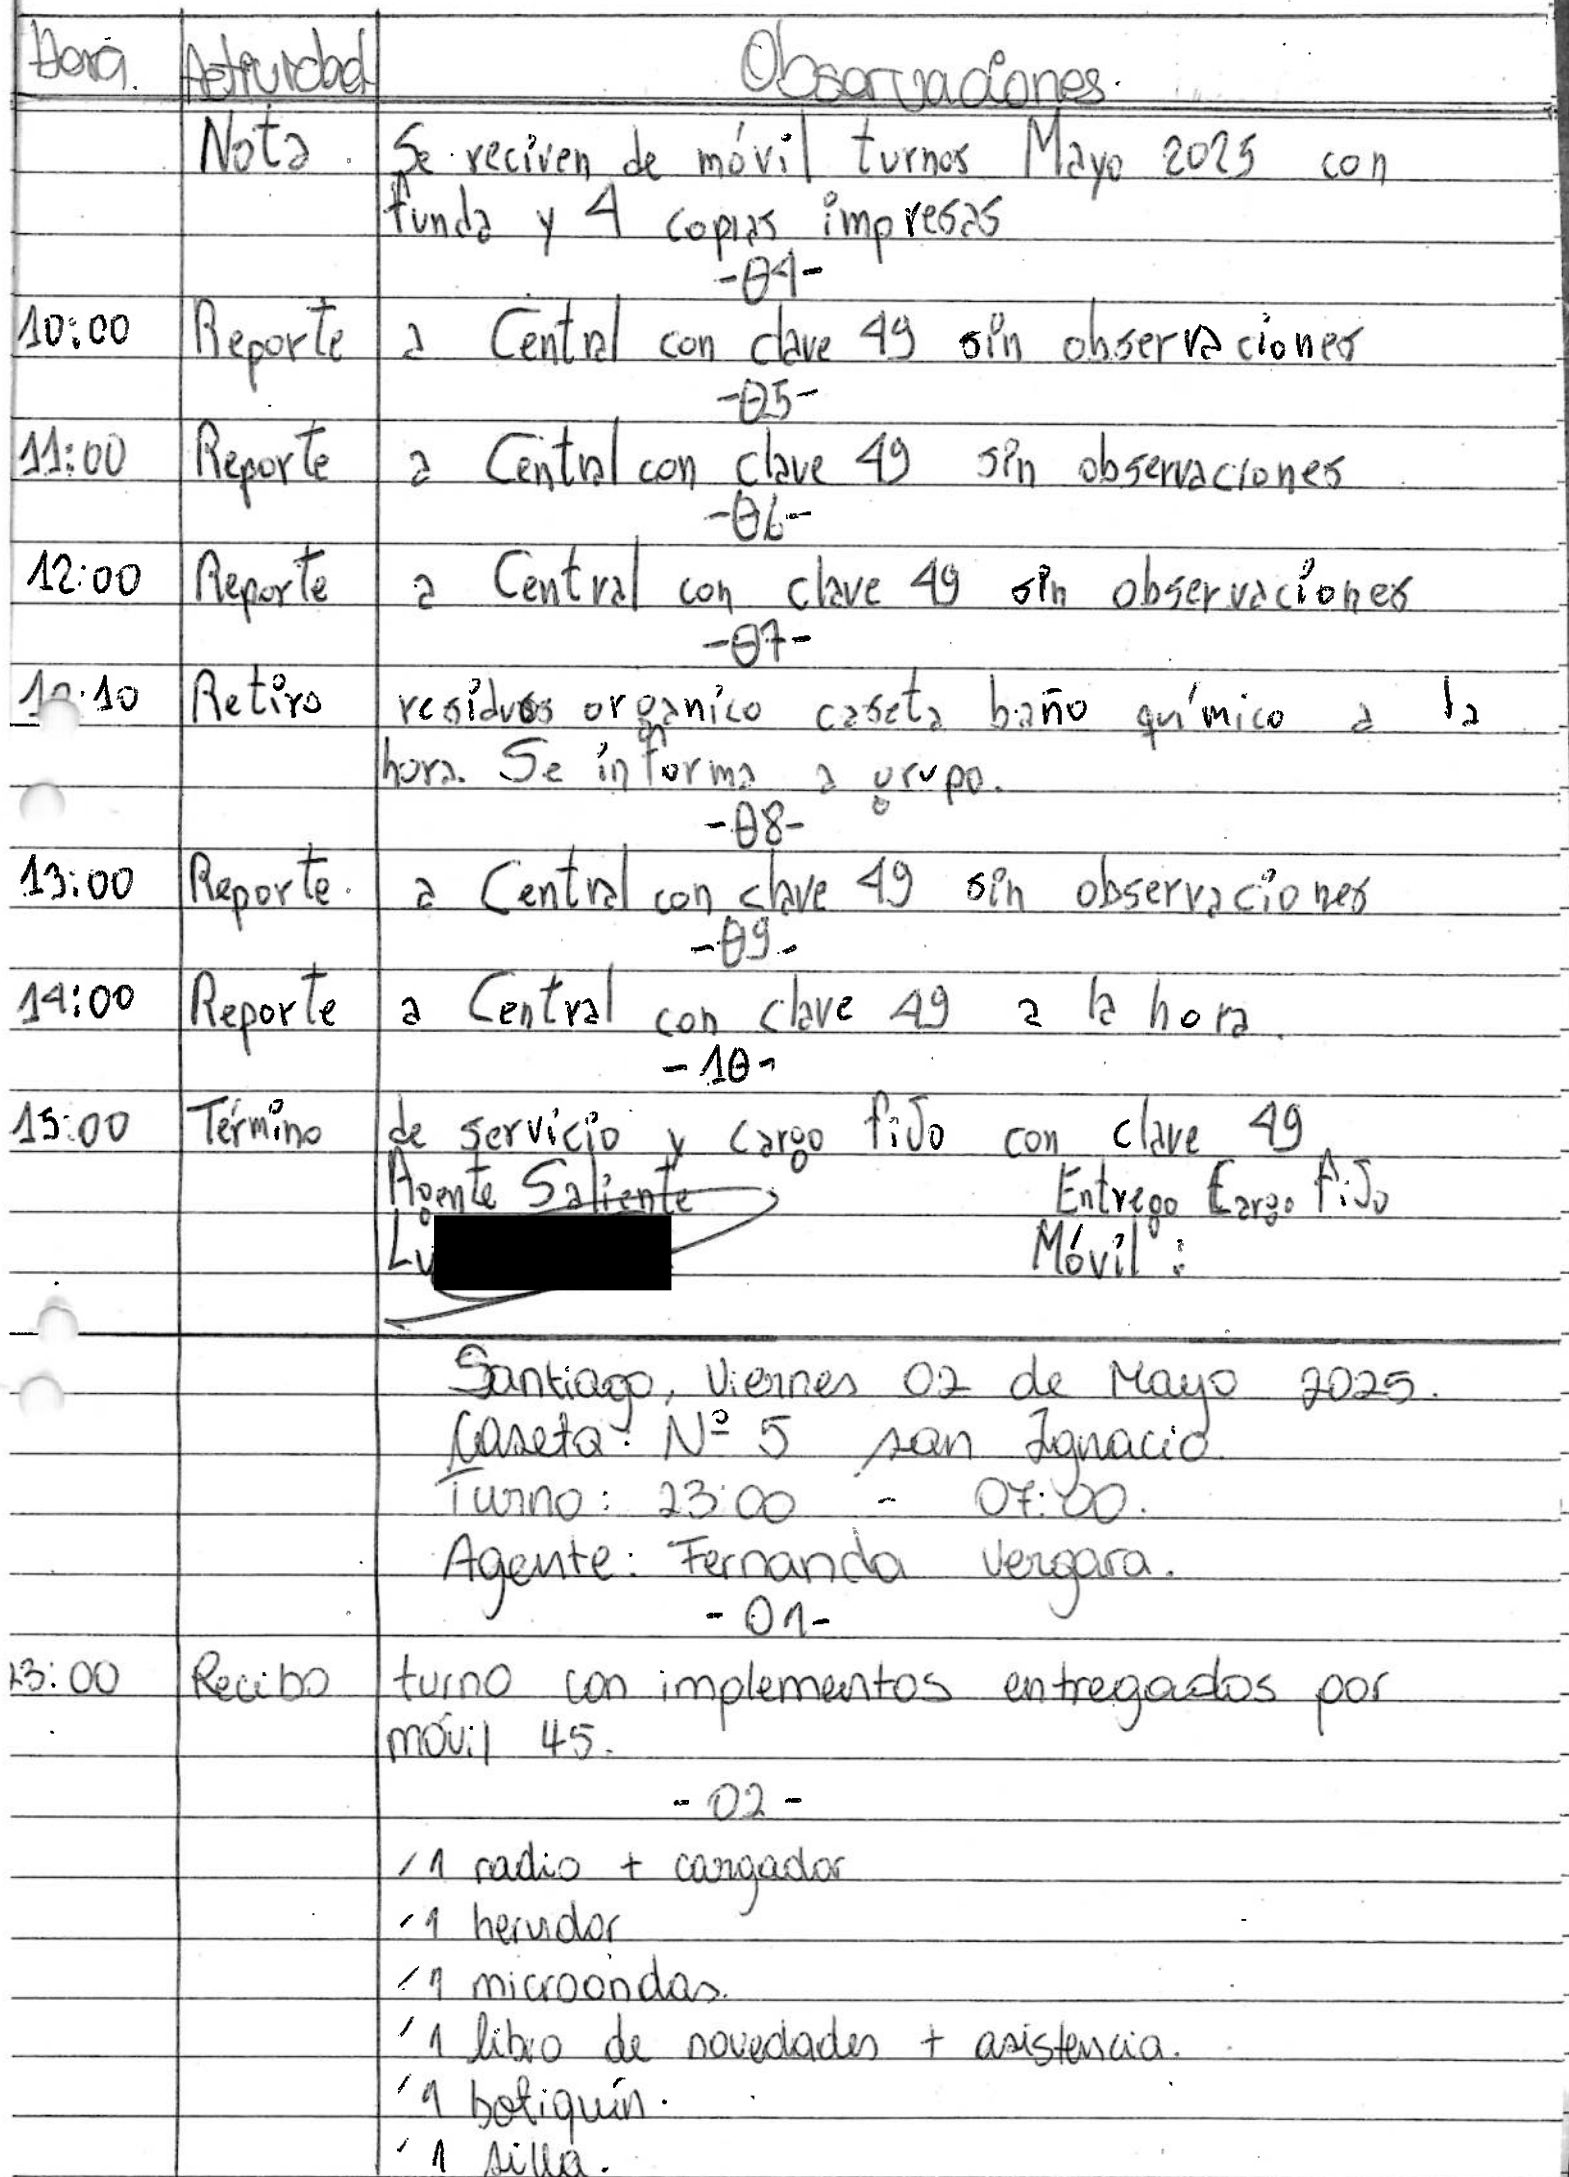 Hora. Actividad Observaciones.
Nota. Se reciven de móvil turnos Mayo 2025 con
funda y 4 copias impresas
-04-
10:00 Reporte a Central con clave 49 sin observaciones
-05-
11:00 Reporte a Central con clave 49 sin observaciones
-06-
12:00 Reporte a Central con clave 49 sin observaciones
-07-
:10 Retiro residuos organico caseta baño químico a la
hora. Se informa a grupo.
-08-
13:00 Reporte. a Central con clave 49 sin observaciones
-09-
14:00 Reporte a Central con clave 49 a la hora.
-10-
15:00 Término de servicio y cargo fijo con clave 49
Agente Saliente Entrego Cargo fijo
Lu Móvil :
Santiago, Viernes 02 de Mayo 2025.
Caseta: Nº 5 san Ignacio.
Turno: 23:00 - 07:00.
Agente: Fernanda Vergara.
-01-
23:00 Recibo turno con implementos entregados por
móvil 45.
-02-
/1 radio + cargador
/1 hervidor
/1 microondas.
/1 libro de novedades + asistencia.
/1 botiquín.
/1 silla.